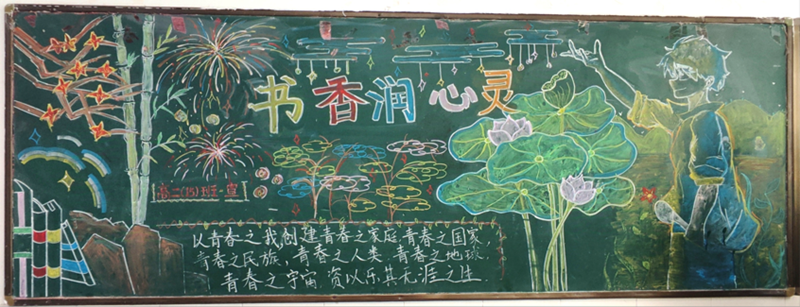 书香润心灵
高二(15)班一宣
以青春之我创建青春之家庭,青春之国家,
青春之民族,青春之人类,青春之地球,
青春之宇宙,资以乐其无涯之生.